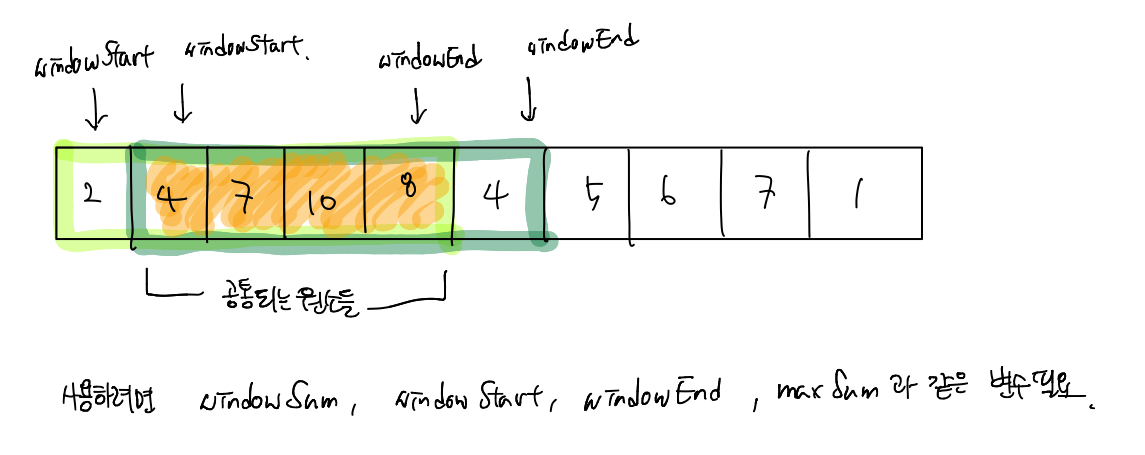 windowStart windowStart. windowEnd windowEnd
2 4 7 10 8 4 5 6 7 1
공통되는 원소들
사용하려면 windowSum, windowStart, windowEnd, maxSum 과 같은 변수 필요.